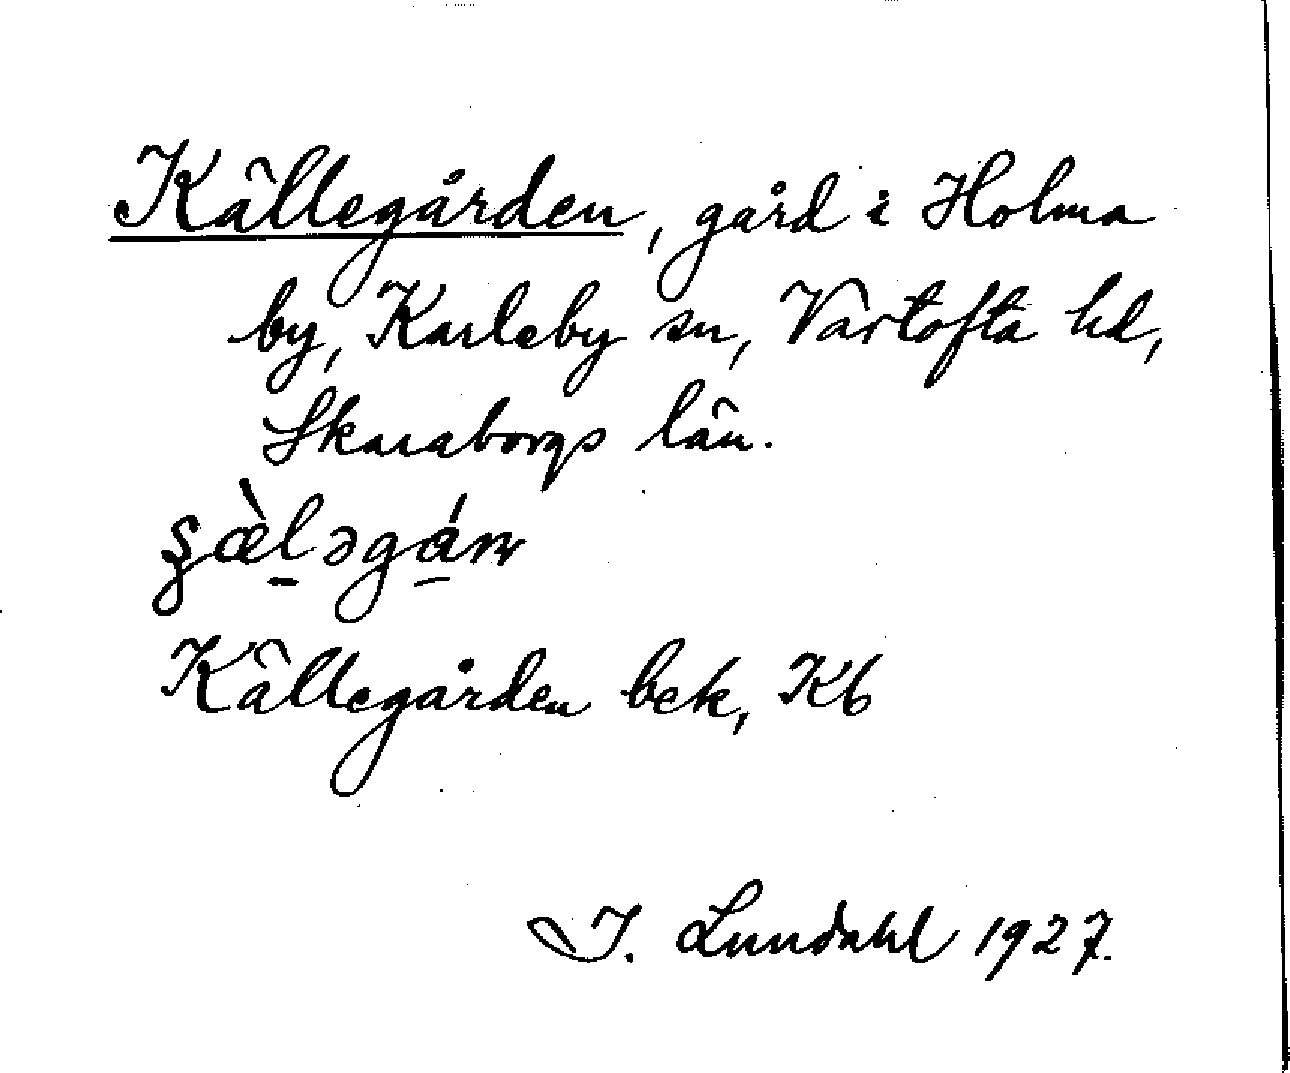 Källegården, gård i Holma
by, Karleby sn, Vartofta hd,
Skaraborgs län.
Källegården bek, Kb
I. Lundahl 1927.